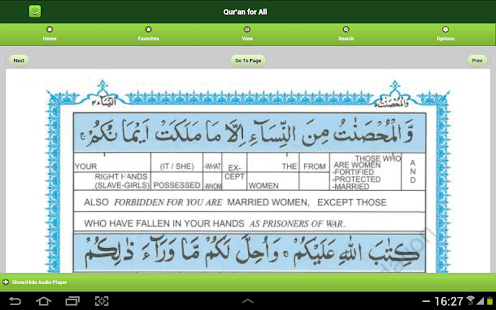 Qur'an for All
Home Favorites View Search Options
Next Go To Page Prev
وَّالْمُحْصَنٰتُ مِنَ النِّسَآءِ اِلَّا مَا مَلَكَتْ اَيْمَانُكُمْ ۚ
YOUR (IT / SHE) -WHAT EX- THE FROM THOSE WHO A
RIGHT HANDS CEPT ARE WOMEN N
(SLAVE-GIRLS) POSSESSED -WHOM WOMEN -FORTIFIED D
-PROTECTED
-MARRIED
ALSO FORBIDDEN FOR YOU ARE MARRIED WOMEN, EXCEPT THOSE
WHO HAVE FALLEN IN YOUR HANDS AS PRISONERS OF WAR.
كِتٰبَ اللّٰهِ عَلَيْكُمْ ۚ وَاُحِلَّ لَكُمْ مَّا وَرَآءَ ذٰلِكُمْ
Show/Hide Audio Player
16:27